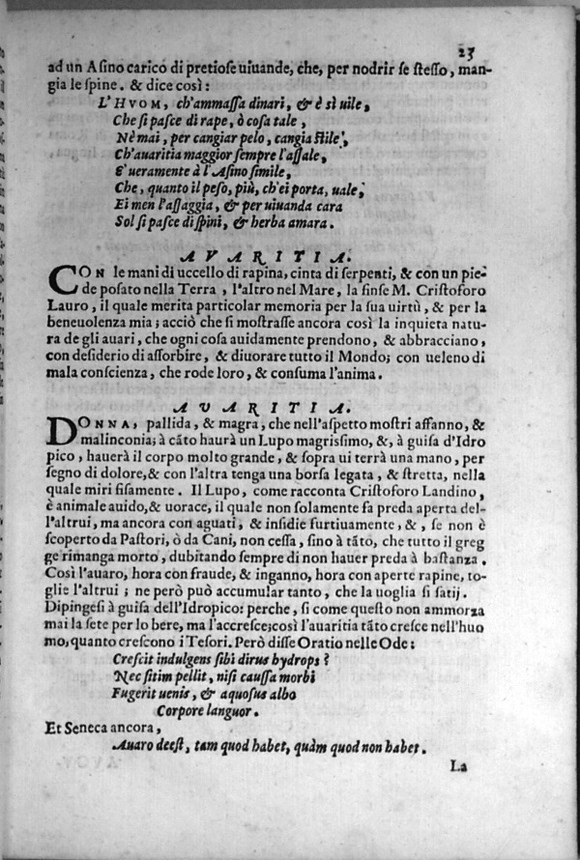 23
ad un Asino carico di pretiose uiuande, che, per nodrir se stesso, man-
gia le spine. & dice così:
L'HVOM, ch'ammassa dinari, & è sì uile,
Che si pasce di rape, ò cosa tale,
Nè mai, per cangiar pelo, cangia stile;
Ch'auaritia maggior sempre l'assale,
E' ueramente à l'Asino simile,
Che, quanto il peso, più, ch'ei porta, uale;
Ei men l'assaggia, & per uiuanda cara
Sol si pasce di spini, & herba amara.
AVARITIA.
CON le mani di uccello di rapina, cinta di serpenti, & con un pie-
de posato nella Terra, l'altro nel Mare, la finse M. Cristoforo
Lauro, il quale merita particolar memoria per la sua uirtù, & per la
beneuolenza mia; acciò che si mostrasse ancora così la inquieta natu-
ra de gli auari, che ogni cosa auidamente prendono, & abbracciano,
con desiderio di assorbire, & diuorare tutto il Mondo; con ueleno di
mala conscienza, che rode loro, & consuma l'anima.
AVARITIA.
DONNA, pallida, & magra, che nell'aspetto mostri affanno, &
malinconia; à cãto haurà un Lupo magrissimo, &, à guisa d'Idro
pico, hauerà il corpo molto grande, & sopra ui terrà una mano, per
segno di dolore, & con l'altra tenga una borsa legata, & stretta, nella
quale miri fisamente. Il Lupo, come racconta Cristoforo Landino,
è animale auido, & uorace, il quale non solamente fa preda aperta del-
l'altrui, ma ancora con aguati, & insidie furtiuamente, &, se non è
scoperto da Pastori, ò da Cani, non cessa, sino à tãto, che tutto il greg
ge rimanga morto, dubitando sempre di non hauer preda à bastanza.
Così l'auaro, hora con fraude, & inganno, hora con aperte rapine, to-
glie l'altrui; ne però può accumular tanto, che la uoglia si satij.
Dipingesi à guisa dell'Idropico: perche, si come questo non ammorza
mai la sete per lo bere, ma l'accresce; così l'auaritia tãto cresce nell'huo
mo, quanto crescono i Tesori. Però disse Oratio nelle Ode:
Crescit indulgens sibi dirus hydrops?
Nec sitim pellit, nisi caussa morbi
Fugerit uenis, & aquosus albo
Corpore languor.
Et Seneca ancora,
Auaro deest, tam quod habet, quàm quod non habet.
La